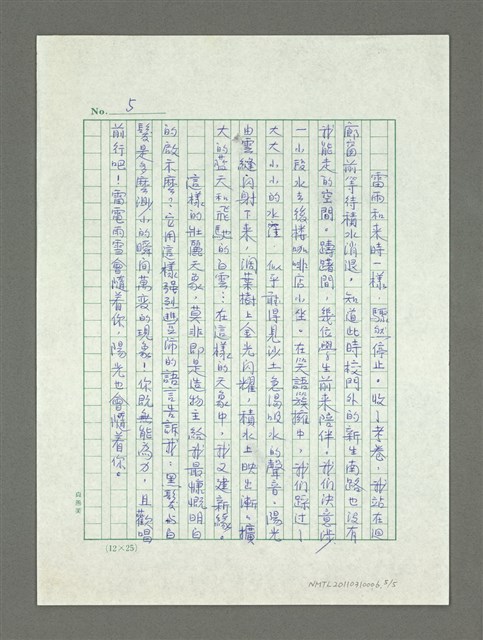 No. 5
雷雨和來時一樣，驟然停止。收了考卷，我站在迴
廊窗前等待積水消退。知道此時校門外的新生南路也沒有
我能走的空間。躊躇間，幾位學生前來陪伴。我們決意涉
一小段水去後樓咖啡店小坐。在笑語簇擁中，我們踩過
大大小小的水窪，似乎聽得見沙土急渴吸水的聲音。陽光
由雲縫閃射下來，濶葉樹上金光閃耀，積水上映出漸漸擴
大的藍天和飛馳的白雲…在這樣的天象中，我又建新緣。
這樣的壯麗天象，莫非即是造物主給我最慷慨明白
的啟示麼？它用這樣強烈 的語言告訴我：黑髮與白
髮是多麼渺小的瞬間萬變的現象！你既無能為力，且歡唱
前行吧！雷電雨雪會隨着你，陽光也會隨着你。
(12×25)
NMTL20110310006, 5/5